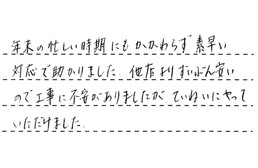 年末の忙しい時期にもかかわらず素早い
対応で助かりました。他店よりずいぶん安い
ので工事に不安がありましたがていねいにやって
いただけました。